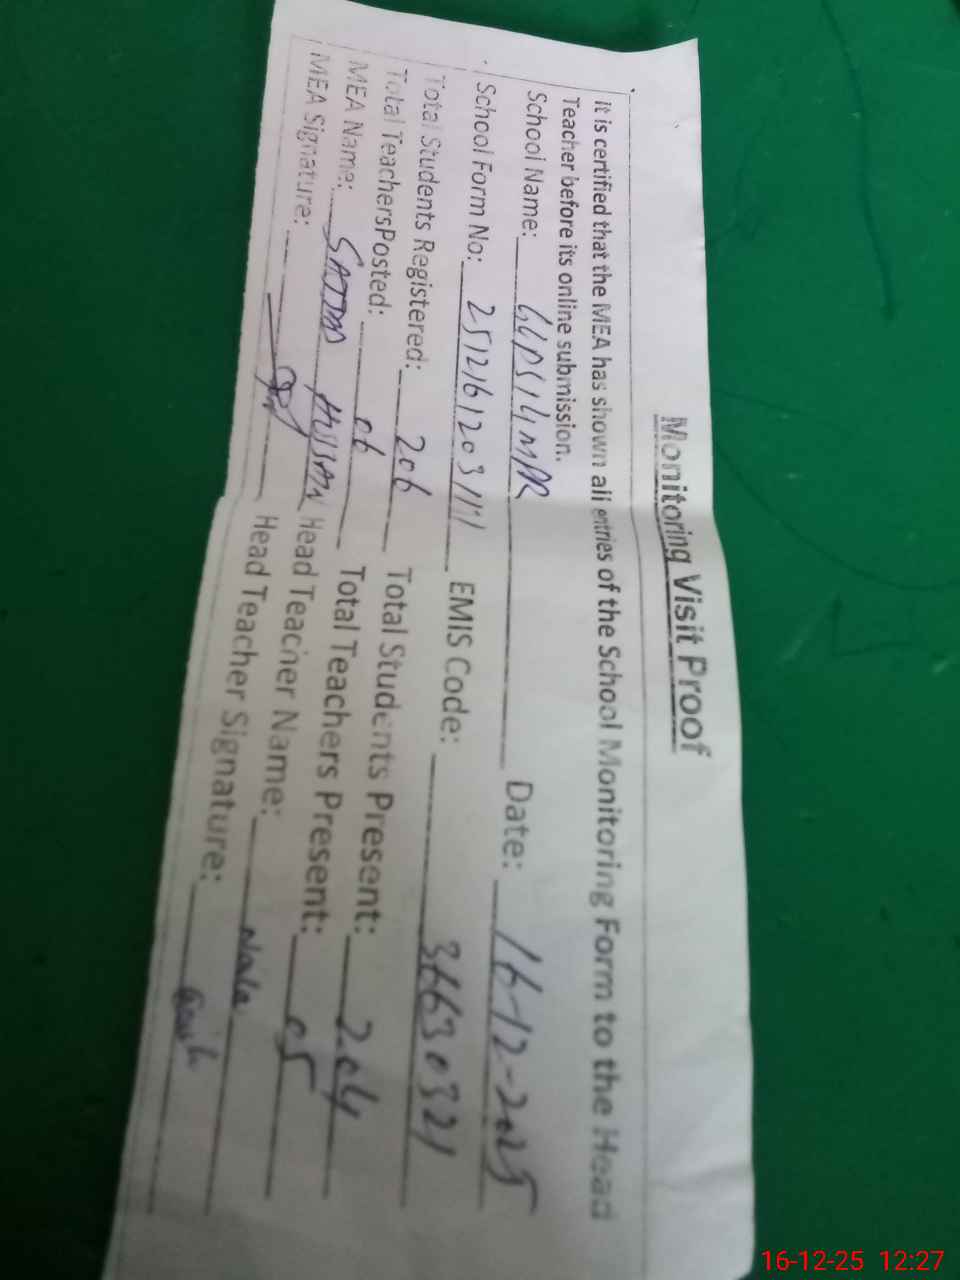 Monitoring Visit Proof
it is certified that the MEA has shown all entries of the School Monitoring Form to the Head
Teacher before its online submission.
School Name: GGPS 141 MPR Date: 16-12-2025
School Form No: 2512161203111 EMIS Code: 36630321
Total Students Registered: 206 Total Students Present: 204
Total TeachersPosted: 06 Total Teachers Present: 05
MEA Name: SAJJAD HUSSAN Head Teacher Name:
MEA Signature: Head Teacher Signature:
16-12-25 12:27